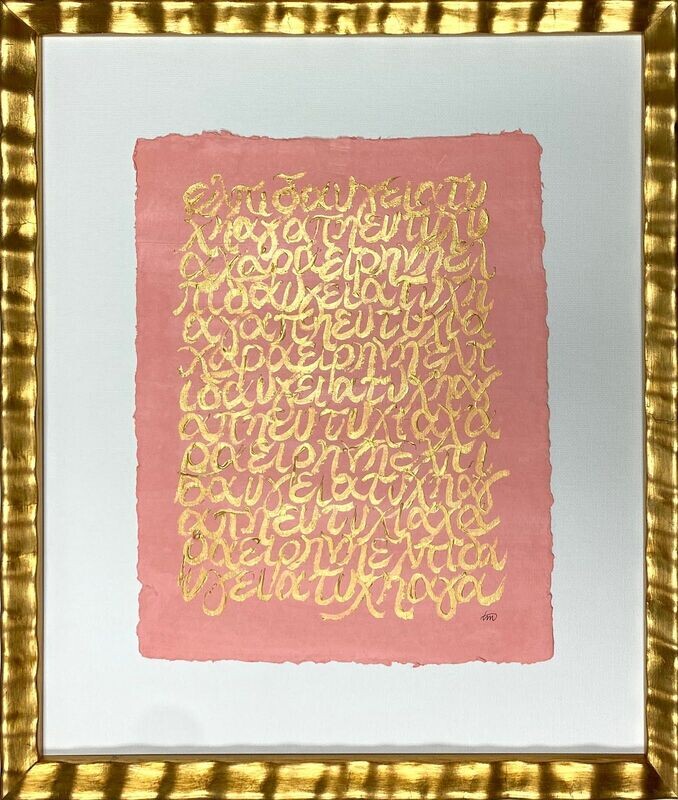 ελπιδαυγειατυ
χηαγαπηευτυχι
αχαραειρηνηελ
πιδαυγειατυχη
αγαπηευτυχια
χαραειρηνηελπ
ιδαυγειατυχηαγ
απηευτυχιαχα
ραειρηνηελπι
δαυγειατυχηαγ
απηευτυχιαχα
ραειρηνηελπιδα
υγειατυχηαγα